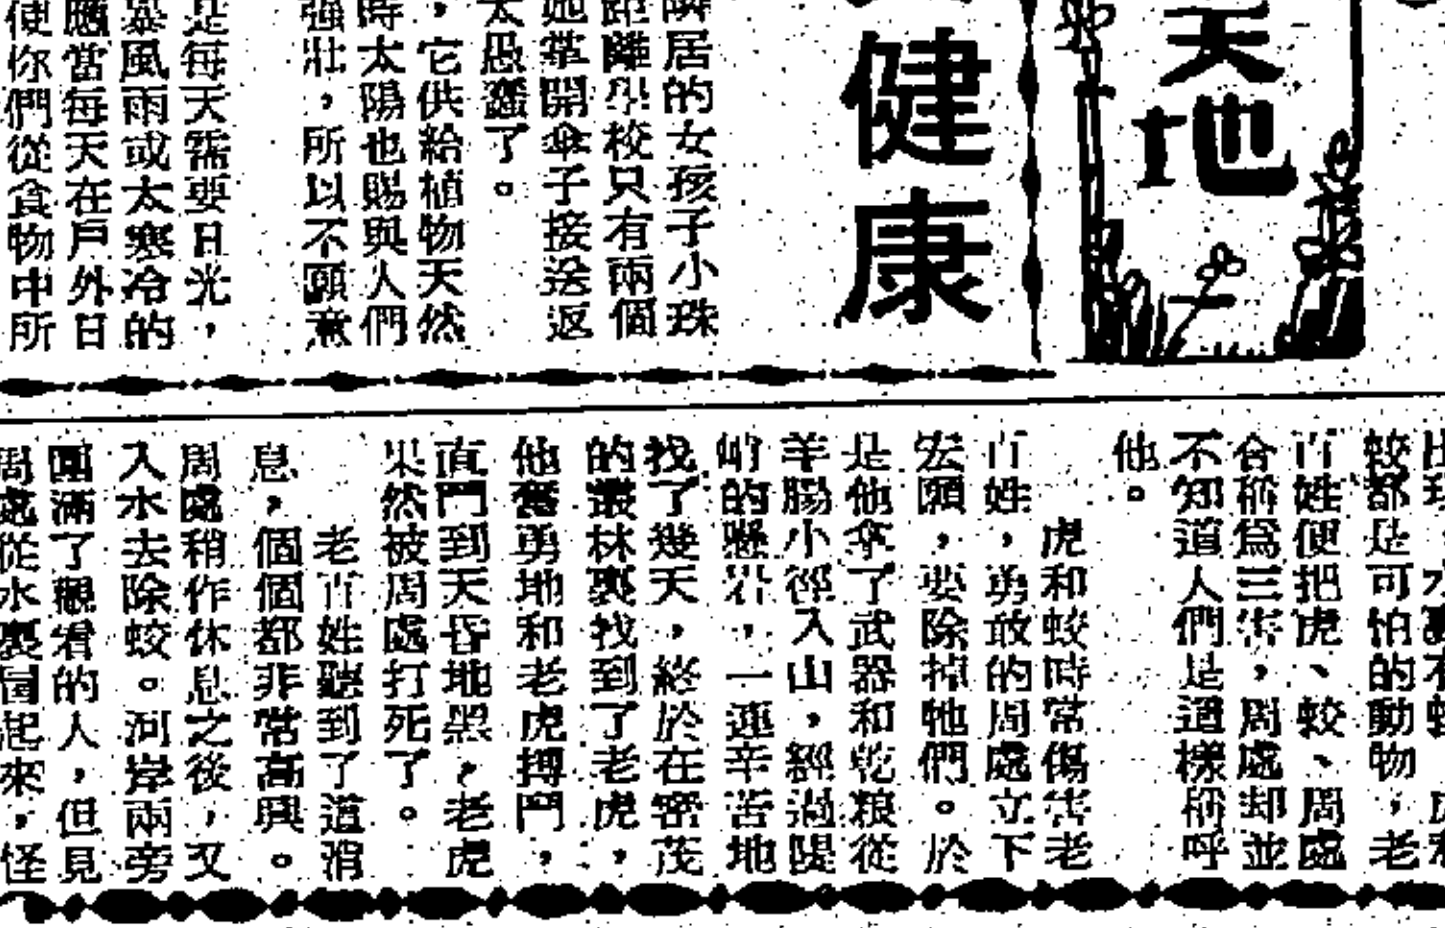 天地
健康
隣居的女孩子小珠
距離學校只有兩個
她掌開傘子接送返
太愚蠢了。
，它供給植物天然
時太陽也賜與人們
強壯，所以不願意
是每天需要日光，
暴風雨或太寒冷的
應當每天在戶外日
使你們從食物中所
蛟都是可怕的動物，老
百姓便把虎、蛟、周處
合稱爲三害，周處却並
不知道人們是這樣稱呼
他。
虎和蛟時常傷害老
百姓，勇敢的周處立下
宏願，要除掉牠們。於
是他拿了武器和乾粮從
羊腸小徑入山，經過陡
峭的懸岩，一連辛苦地
找了幾天，終於在密茂
的叢林裏找到了老虎，
他奮勇地和老虎搏鬥，
直鬥到天昏地黑，老虎
果然被周處打死了。
老百姓聽到了這消
息，個個都非常高興。
周處稍作休息之後，又
入水去除蛟。河岸兩旁
圍滿了觀看的人，但見
周處從水裏冒起來，怪